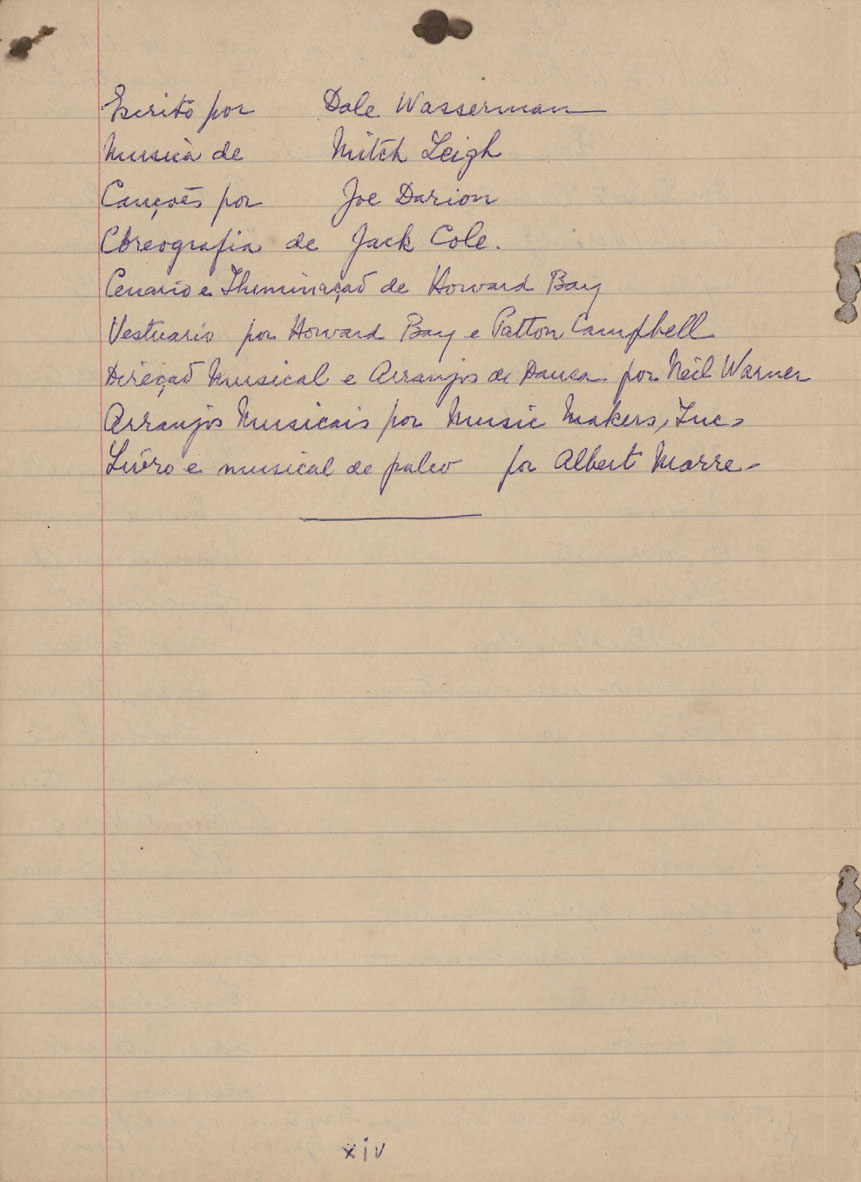 Escrito por Dale Wasserman
Musica de Mitch Leigh
Canções por Joe Darion
Coreografia de Jack Cole.
Cenario e Illuminação de Howard Bay
Vestuario por Howard Bay e Patton Campbell
Direção Musical e Arranjos de Dansa por Neil Warner
Arranjos Musicais por Music Makers, Inc.
Livro e musical de palco por Albert Marre.
xiv